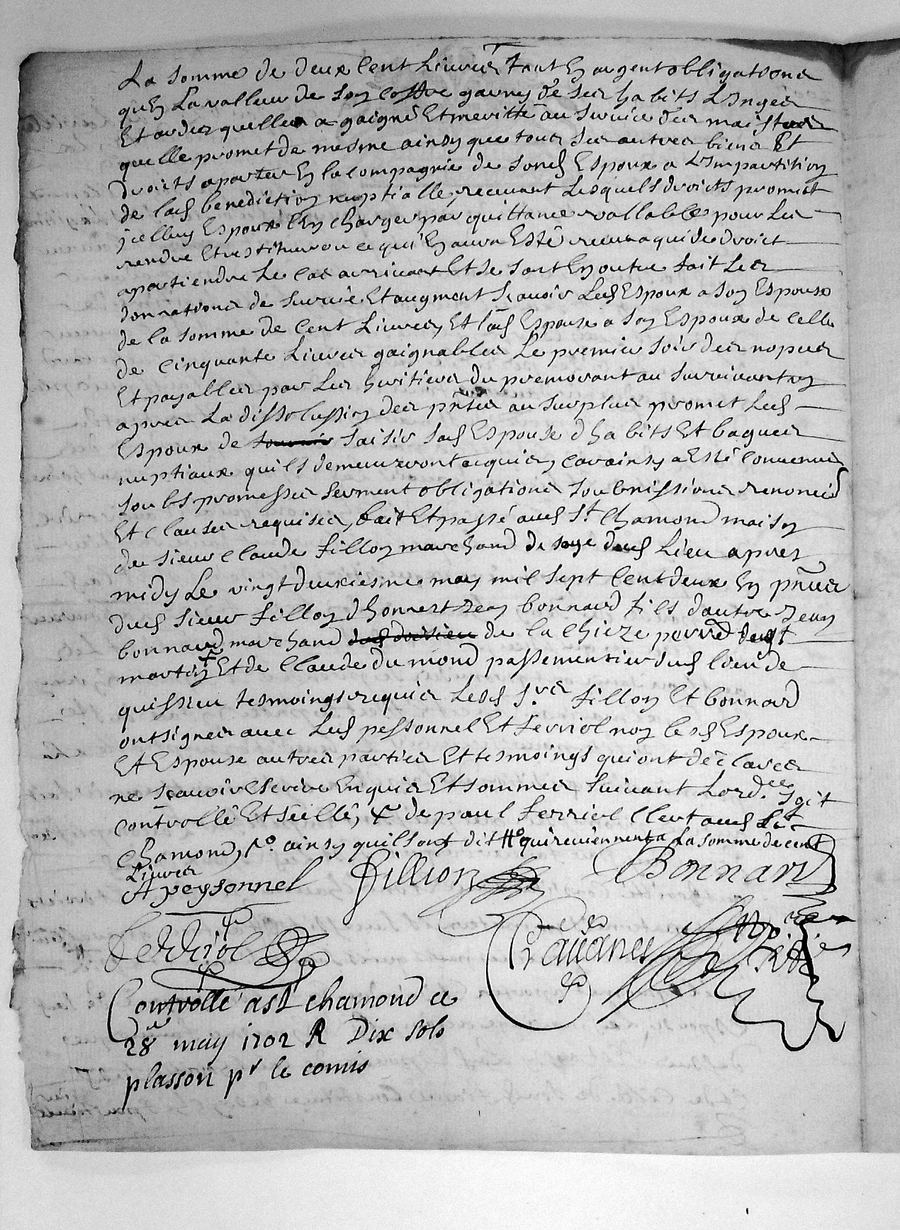 La somme de deux Cent Livres tant En argent obligations
quEn La valleur de son coffre garny de ses habits Linges
Et autres quelle a gaigné Et meritté au service des maistres
quelle promet de mesme ainsy que tous ses autres biens Et
droicts aporter En la compagnie de sond Espoux a Limpartition
de lad benediction nuptialle, recevant Lesquels droicts promet
jcelluy Espoux lEn charger par quittance vallables pour Les
rendre Et restituer ou ce quEn aura Esté receu a qui de droict
apartiendra Le cas arrivant Et se sont En outre fait Les
donnations de survie Et augment scavoir Led Espoux a son Espouse
de la somme de Cent Livres, Et lad Espouse a son Espoux de celle
de cinquante Livres gaignables Le premier soir des nopces
Et payables par Les heritiers du premourant au survivant
apres La dissolussion des pntes au surplus promet Led
Espoux de saisir sad Espouse dhabits Et bagues
nuptiaux quils demeureront acquis, car ainsy a Esté Convenu
soubs promesses serment obligations soubmissions renonciō
Et clauses requises, fait Et passé aud St Chamond maison
du sieur Claude fillion marchand de soye dud Lieu apres
midy Le vingt deuxiesme may mil sept Cent deux En pnces
dud sieur fillion dhonnest Jean bonnard fils dautre Jean
bonnard marchand de la Chieze
martin Et de Claude dumond passementier dud lieu de
quissieu tesmoings requis Lesd srs fillion Et bonnard
ont signes avec Led pessonnel Et ferriol non lesd Espoux
Et Espouse autres parties Et tesmoings qui ont declarer
ne scavoir Escrire Enquis Et sommes suivant Lordce soit
controllé Et seellé, & de paul ferriol Clert aud St
Chamond, ainsy quils ont dit qui reviennent a La somme de cent
Livres
A peysonnel fillion Bonnard
ferriol Ravanes
Controllé a St chamond ce
28e may 1702 R Dix sols
plasson pr le comis